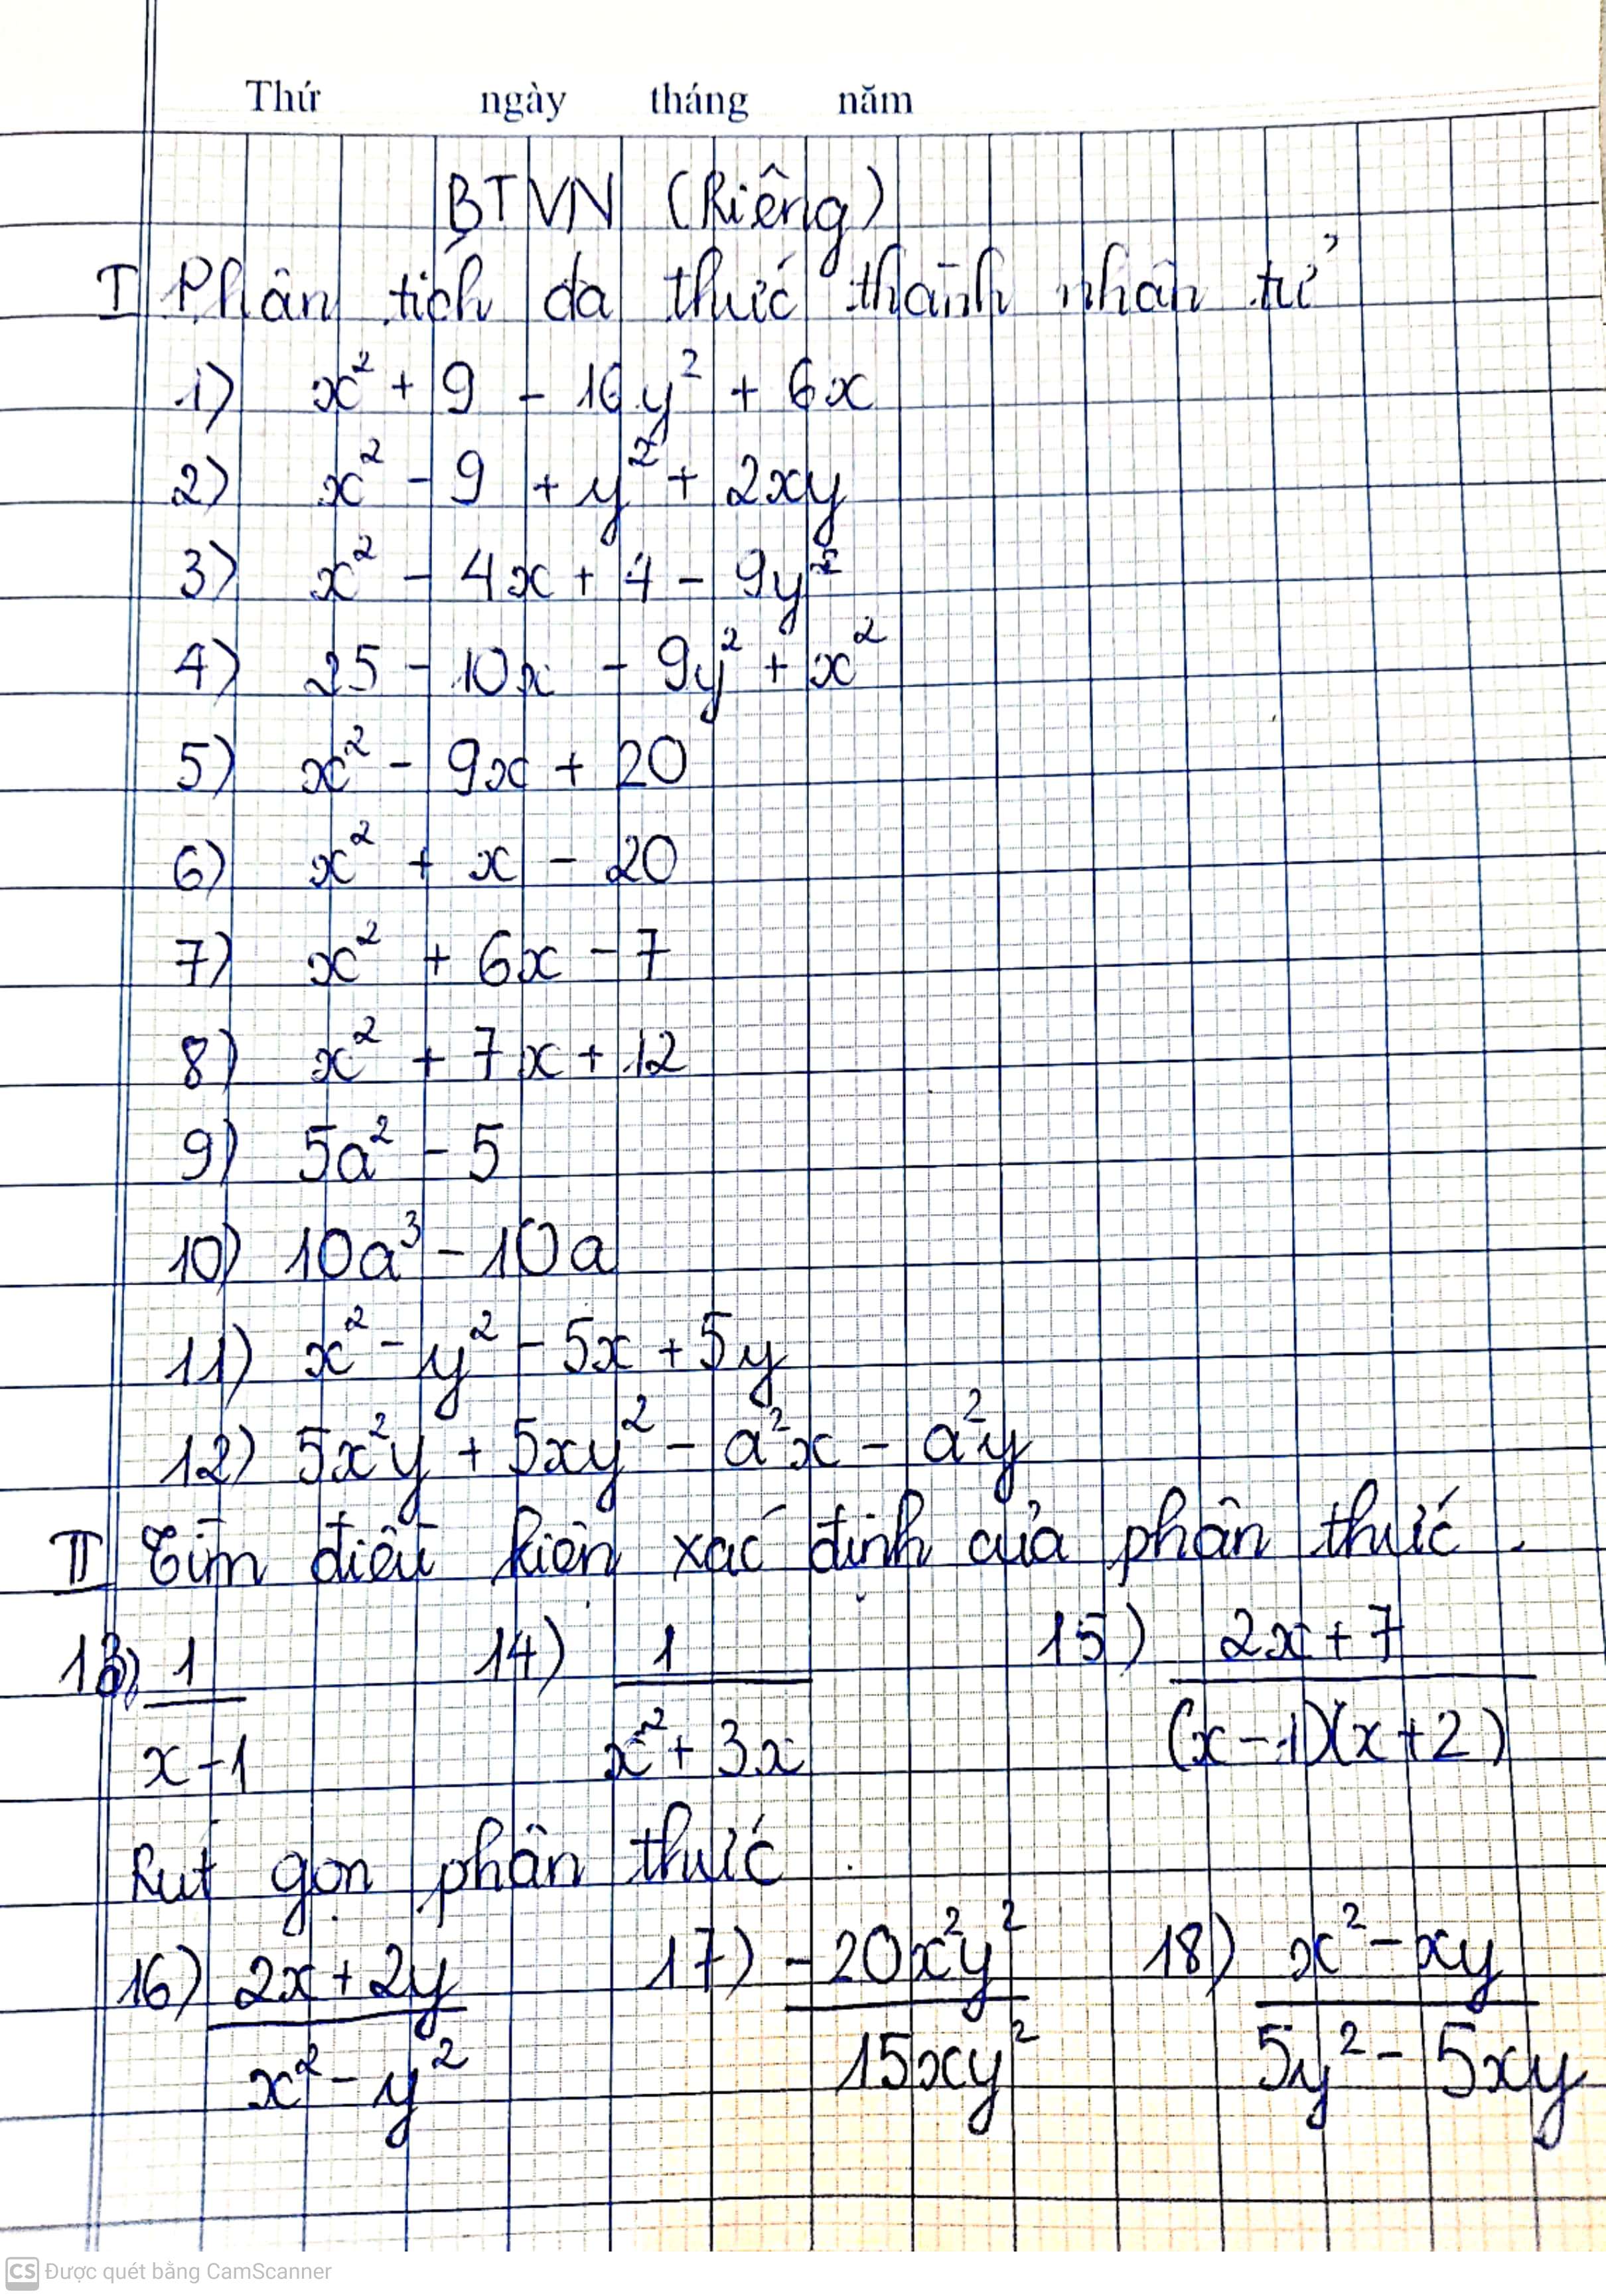 Thứ ngày tháng năm
BTVN (Riêng)
I Phân tích đa thức thành nhân tử
1) x² + 9 - 16y² + 6x
2) x² - 9 + y² + 2xy
3) x² - 4x + 4 - 9y²
4) 25 - 10x - 9y² + x²
5) x² - 9x + 20
6) x² + x - 20
7) x² + 6x - 7
8) x² + 7x + 12
9) 5a² - 5
10) 10a³ - 10a
11) x² - y² - 5x + 5y
12) 5x²y + 5xy² - a²x - a²y
II Tìm điều kiện xác định của phân thức.
13) 1 14) 1 15) 2x + 7
x - 1 x² + 3x (x - 1)(x + 2)
Rút gọn phân thức.
16) 2x + 2y 17) -20x²y² 18) x² - xy
x² - y² 15xy² 5y² - 5xy
CS Được quét bằng CamScanner